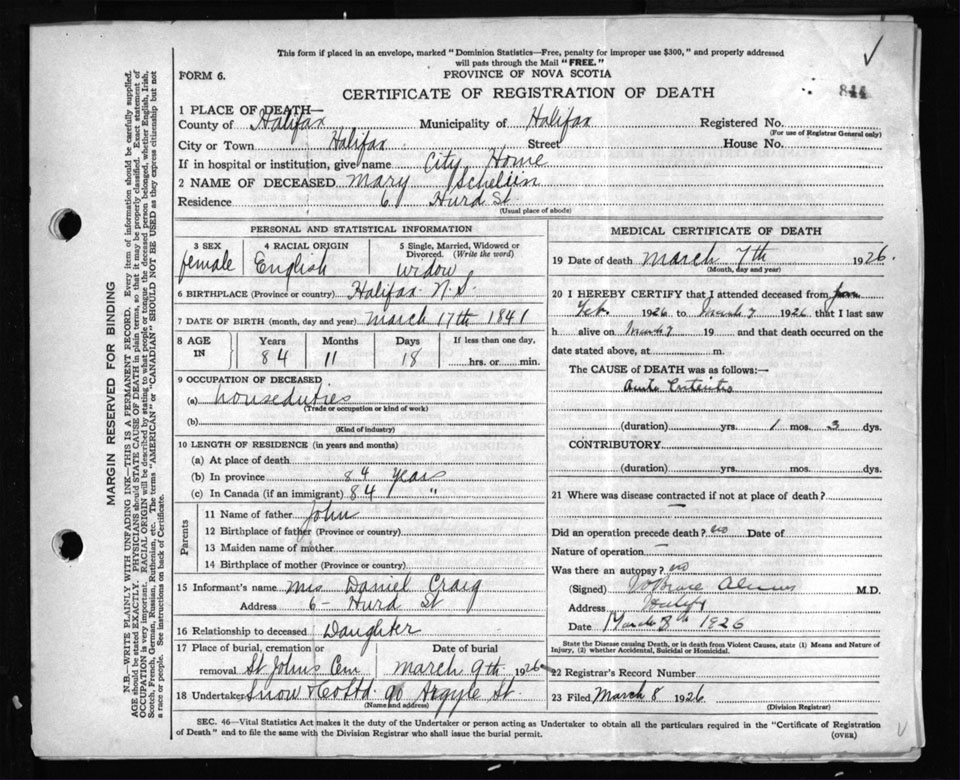 This form if placed in an envelope, marked "Dominion Statistics—Free, penalty for improper use $300," and properly addressed
will pass through the Mail "FREE."
FORM 6.
PROVINCE OF NOVA SCOTIA
CERTIFICATE OF REGISTRATION OF DEATH
844
1 PLACE OF DEATH—
County of Halifax Municipality of Halifax Registered No.
(For use of Registrar General only)
City or Town Halifax Street House No.
If in hospital or institution, give name City Home
2 NAME OF DECEASED Mary
Residence 6 Hurd St.
(Usual place of abode)
PERSONAL AND STATISTICAL INFORMATION
3 SEX female
4 RACIAL ORIGIN English
5 Single, Married, Widowed or
Divorced. (Write the word)
widow
6 BIRTHPLACE (Province or country) Halifax N.S.
7 DATE OF BIRTH (month, day and year) March 17th 1841
8 AGE IN
Years Months Days If less than one day,
84 11 18 hrs. or min.
9 OCCUPATION OF DECEASED
(a) houseduties
(Trade or occupation or kind of work)
(b)
(Kind of industry)
10 LENGTH OF RESIDENCE (in years and months)
(a) At place of death
(b) In province 84 years
(c) In Canada (if an immigrant) 84 "
Parents
11 Name of father John
12 Birthplace of father (Province or country)
13 Maiden name of mother
14 Birthplace of mother (Province or country)
15 Informant's name Mrs Daniel Craig
Address 6 - Hurd St
16 Relationship to deceased Daughter
17 Place of burial, cremation or Date of burial
removal St Johns Cem March 9th 1926
18 Undertaker Snow & Co Ltd. 90 Argyle St.
(Name and address)
MEDICAL CERTIFICATE OF DEATH
19 Date of death March 7th 1926.
(Month, day and year)
20 I HEREBY CERTIFY that I attended deceased from
Feb. 1926 to March 7 1926 that I last saw
h alive on March 7 19 and that death occurred on the
date stated above, at m.
The CAUSE of DEATH was as follows:—
(duration) yrs. 1 mos. 3 dys.
CONTRIBUTORY
(duration) yrs. mos. dys.
21 Where was disease contracted if not at place of death?
Did an operation precede death? no Date of
Nature of operation
Was there an autopsy? no
(Signed) M.D.
Address Halifax
Date March 8th 1926
State the Disease causing Death, or in death from Violent Causes, state (1) Means and Nature of
Injury, (2) whether Accidental, Suicidal or Homicidal.
22 Registrar's Record Number
23 Filed March 8 1926
(Division Registrar)
SEC. 46—Vital Statistics Act makes it the duty of the Undertaker or person acting as Undertaker to obtain all the particulars required in the "Certificate of Registration
of Death" and to file the same with the Division Registrar who shall issue the burial permit.
(OVER)
MARGIN RESERVED FOR BINDING
N.B.—WRITE PLAINLY WITH UNFADING INK—THIS IS A PERMANENT RECORD. Every item of information should be carefully supplied.
AGE should be stated EXACTLY. PHYSICIANS should STATE CAUSE OF DEATH in plain terms, so that it may be properly classified. Exact statement of
OCCUPATION is very important. RACIAL ORIGIN will be described by stating to what people or tongue the deceased person belonged, whether English, Irish,
Scotch, French, German, Russian, Ruthenian, etc. The terms "AMERICAN" or "CANADIAN" SHOULD NOT BE USED as they express citizenship but not
a race or people. See instructions on back of Certificate.